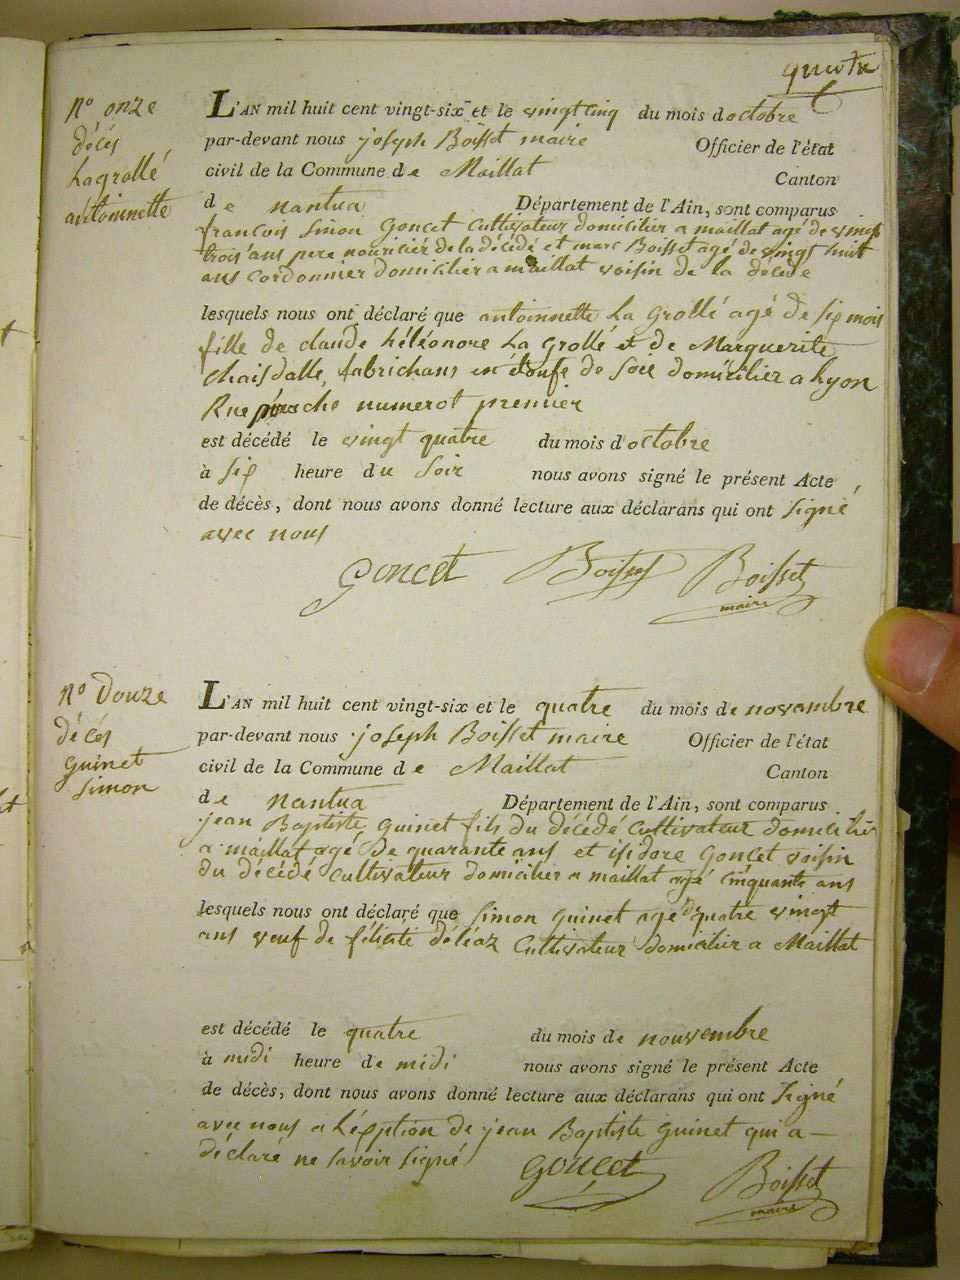 N° onze
décés
Lagrollé
antoinnette
L'AN mil huit cent vingt-six et le vingt cinq du mois d octobre
par-devant nous joseph Boisset maire Officier de l'état
civil de la Commune de Maillat Canton
de nantua Département de l'Ain, sont comparus
francois Simon Goncet Cultivateur domicilier a maillat agé de vingt
trois ans pere nouricier de la décédé et marc Boisset agé de vingt huit
ans Cordonnier domicilier a maillat voisin de la décédé
lesquels nous ont déclaré que antoinnette La Grollé agé de six mois
fille de claude héléonore La Grollé et de Marguerite
Chaisdalle, fabrichans en étoufe de Soie domicilier a Lyon
Rue numerot premier
est décédé le vingt quatre du mois d octobre
à six heure du Soir nous avons signé le présent Acte
de décès, dont nous avons donné lecture aux déclarans qui ont Signé
avec nous
Goncet Boisset Boisset
maire
N° Douze
décés
guinet
Simon
L'AN mil huit cent vingt-six et le quatre du mois de novambre
par-devant nous joseph Boisset maire Officier de l'état
civil de la Commune de Maillat Canton
de nantua Département de l'Ain, sont comparus
jean Baptiste guinet fils du décédé Cultivateur domicilier
a maillat agé De quarante ans et isidore Goncet voisin
du décédé Cultivateur domicilier a maillat agé cinquante ans
lesquels nous ont déclaré que Simon guinet age de quatre vingt
ans veuf de félicité déléaz Cultivateur domicilier a Maillat
est décédé le quatre du mois de nouvembre
à midi heure de midi nous avons signé le présent Acte
de décès, dont nous avons donné lecture aux déclarans qui ont Signé
avec nous a l'éxption de jean Baptiste guinet qui a
déclaré ne savoir signé
Goncet Boisset
maire